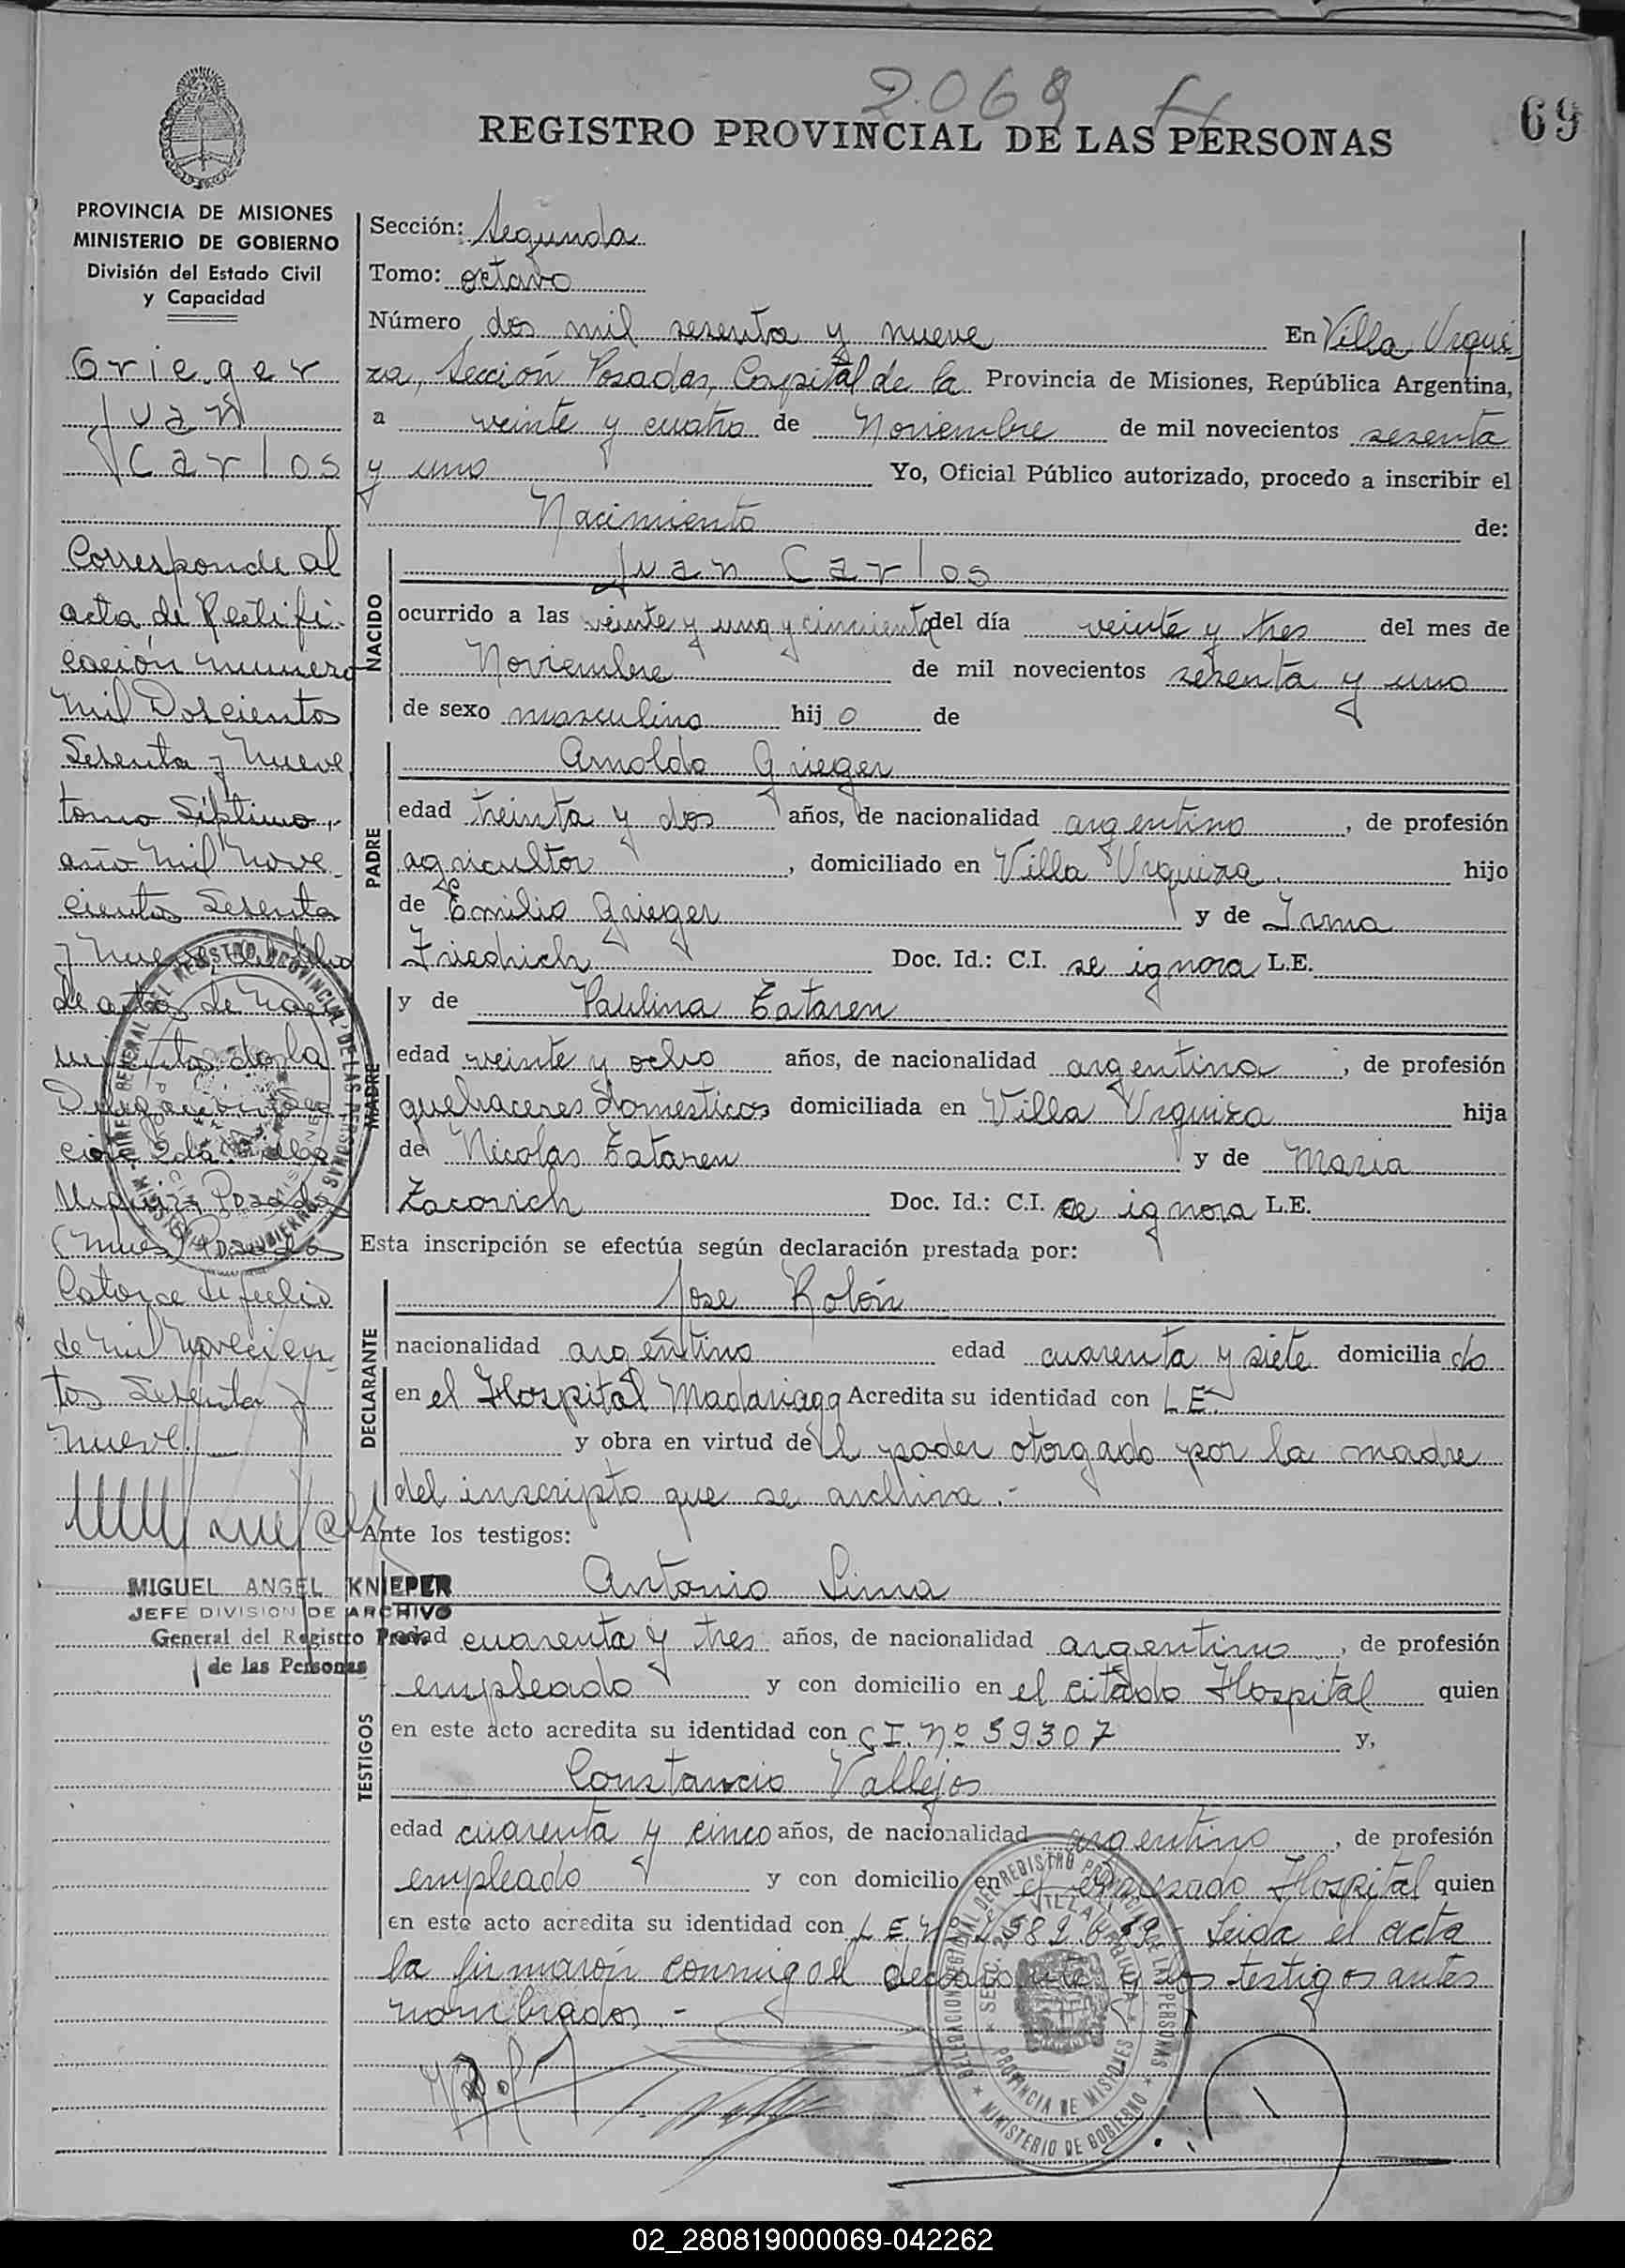 2069
69
REGISTRO PROVINCIAL DE LAS PERSONAS
PROVINCIA DE MISIONES
MINISTERIO DE GOBIERNO
División del Estado Civil
y Capacidad
Grieger
Juan
Carlos
Corresponde al
acta de Rectifi-
cación numero
Mil Doscientos
Setenta y Nueve
tomo Séptimo,
año Mil Nove
cientos Setenta
y Nueve
de actas de Naci
mientos de la
Urquiza Posadas
Posadas
Catorce de julio
de Mil Novecien-
tos Setenta y
nueve.
MIGUEL ANGEL KNIEPER
JEFE DIVISION DE ARCHIVO
General del Registro Prov.
de las Personas
Sección: Segunda
Tomo: octavo
Número dos mil sesenta y nueve En Villa Urqui
za, Sección Posadas, Capital de la Provincia de Misiones, República Argentina,
a veinte y cuatro de Noviembre de mil novecientos sesenta
y uno Yo, Oficial Público autorizado, procedo a inscribir el
Nacimiento de:
NACIDO
Juan Carlos
ocurrido a las veinte y una y cincuenta del día veinte y tres del mes de
Noviembre de mil novecientos sesenta y uno
de sexo masculino hijo de
PADRE
Arnoldo Grieger
edad treinta y dos años, de nacionalidad argentino, de profesión
agricultor, domiciliado en Villa Urquiza. hijo
de Emilio Grieger y de Irma
Friedrich Doc. Id.: C.I. se ignora L.E.
MADRE
y de Paulina Zataren
edad veinte y ocho años, de nacionalidad argentina, de profesión
quehaceres domesticos domiciliada en Villa Urquiza hija
de Nicolas Zataren y de Maria
Zacovich Doc. Id.: C.I. se ignora L.E.
Esta inscripción se efectúa según declaración prestada por:
DECLARANTE
Jose Rolón
nacionalidad argentino edad cuarenta y siete domiciliado
en el Hospital Madariaga Acredita su identidad con L.E.
y obra en virtud del poder otorgado por la madre
del inscripto que se archiva.-
Ante los testigos:
TESTIGOS
Antonio Lima
edad cuarenta y tres años, de nacionalidad argentino, de profesión
empleado y con domicilio en el citado Hospital quien
en este acto acredita su identidad con C.I. Nº 59307 y,
Constancio Vallejos
edad cuarenta y cinco años, de nacionalidad argentino, de profesión
empleado y con domicilio en el expresado Hospital quien
en este acto acredita su identidad con L.E. Leida el acta
la firmarón conmigo el declarante y los testigos antes
nombrados.-
DELEGACION REGIONAL DEL REGISTRO PROVINCIAL DE LAS PERSONAS
SEC. 2da. VILLA URQUIZA
PROVINCIA DE MISIONES
MINISTERIO DE GOBIERNO
02_280819000069-042262